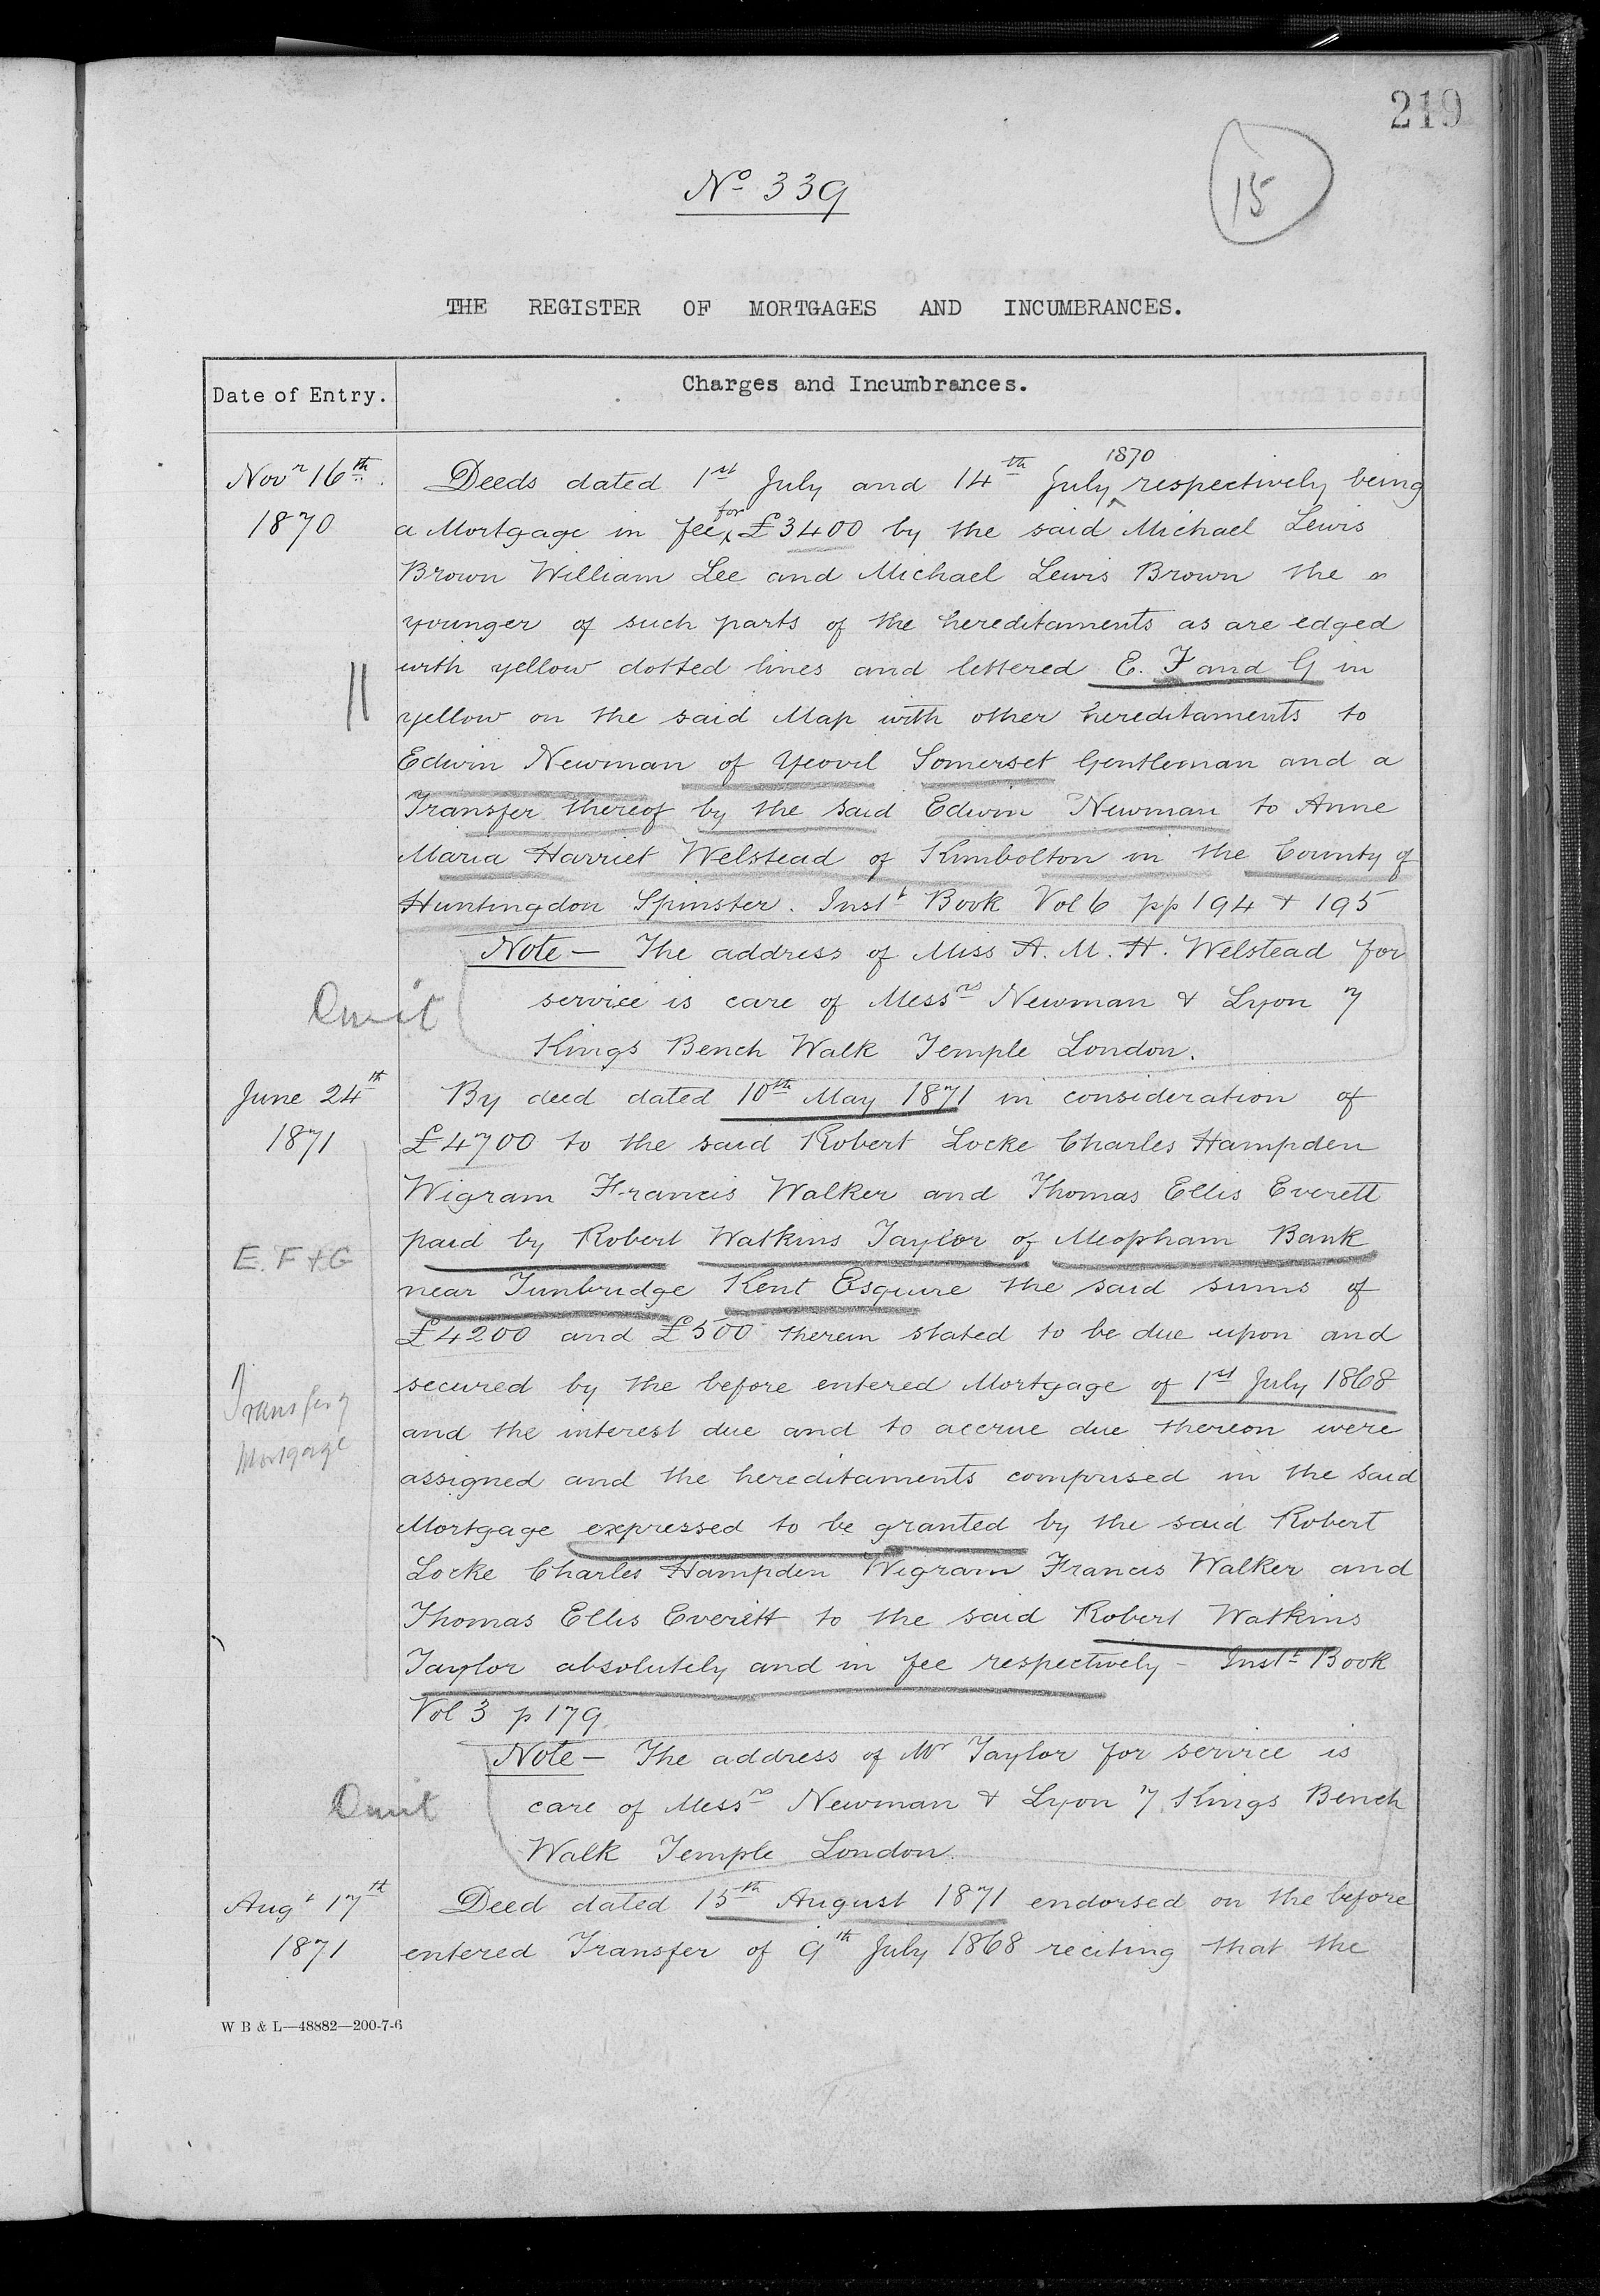 219
15
No 339
THE REGISTER OF MORTGAGES AND INCUMBRANCES.
Date of Entry.
Charges and Incumbrances.
Novr 16th 1870
Deeds dated 1st July and 14th July 1870 respectively being
a Mortgage in fee for £3400 by the said Michael Lewis
Brown William Lee and Michael Lewis Brown the
younger of such parts of the hereditaments as are edged
with yellow dotted lines and lettered E. F and G in
yellow on the said Map with other hereditaments to
Edwin Newman of Yeovil Somerset Gentleman and a
Transfer thereof by the said Edwin Newman to Anne
Maria Harriet Welstead of Kimbolton in the County of
Huntingdon Spinster. Instt Book Vol 6 pp 194 + 195
Omit
Note — The address of Miss A. M. H. Welstead for
service is care of Messrs Newman & Lyon 7
Kings Bench Walk Temple London.
June 24th 1871
By deed dated 10th May 1871 in consideration of
£4700 to the said Robert Locke Charles Hampden
Wigram Francis Walker and Thomas Ellis Everett
E. F + G
paid by Robert Watkins Taylor of Meopham Bank
near Tunbridge Kent Esquire the said sums of
£4200 and £500 therein stated to be due upon and
Transfer of
Mortgage
secured by the before entered Mortgage of 1st July 1868
and the interest due and to accrue due thereon were
assigned and the hereditaments comprised in the said
Mortgage expressed to be granted by the said Robert
Locke Charles Hampden Wigram Francis Walker and
Thomas Ellis Everett to the said Robert Watkins
Taylor absolutely and in fee respectively — Instt Book
Vol 3 p 179
Omit
Note — The address of Mr Taylor for service is
care of Messrs Newman & Lyon 7 Kings Bench
Walk Temple London.
Augt 17th 1871
Deed dated 15th August 1871 endorsed on the before
entered Transfer of 9th July 1868 reciting that the
W B & L—48882—200-7-6